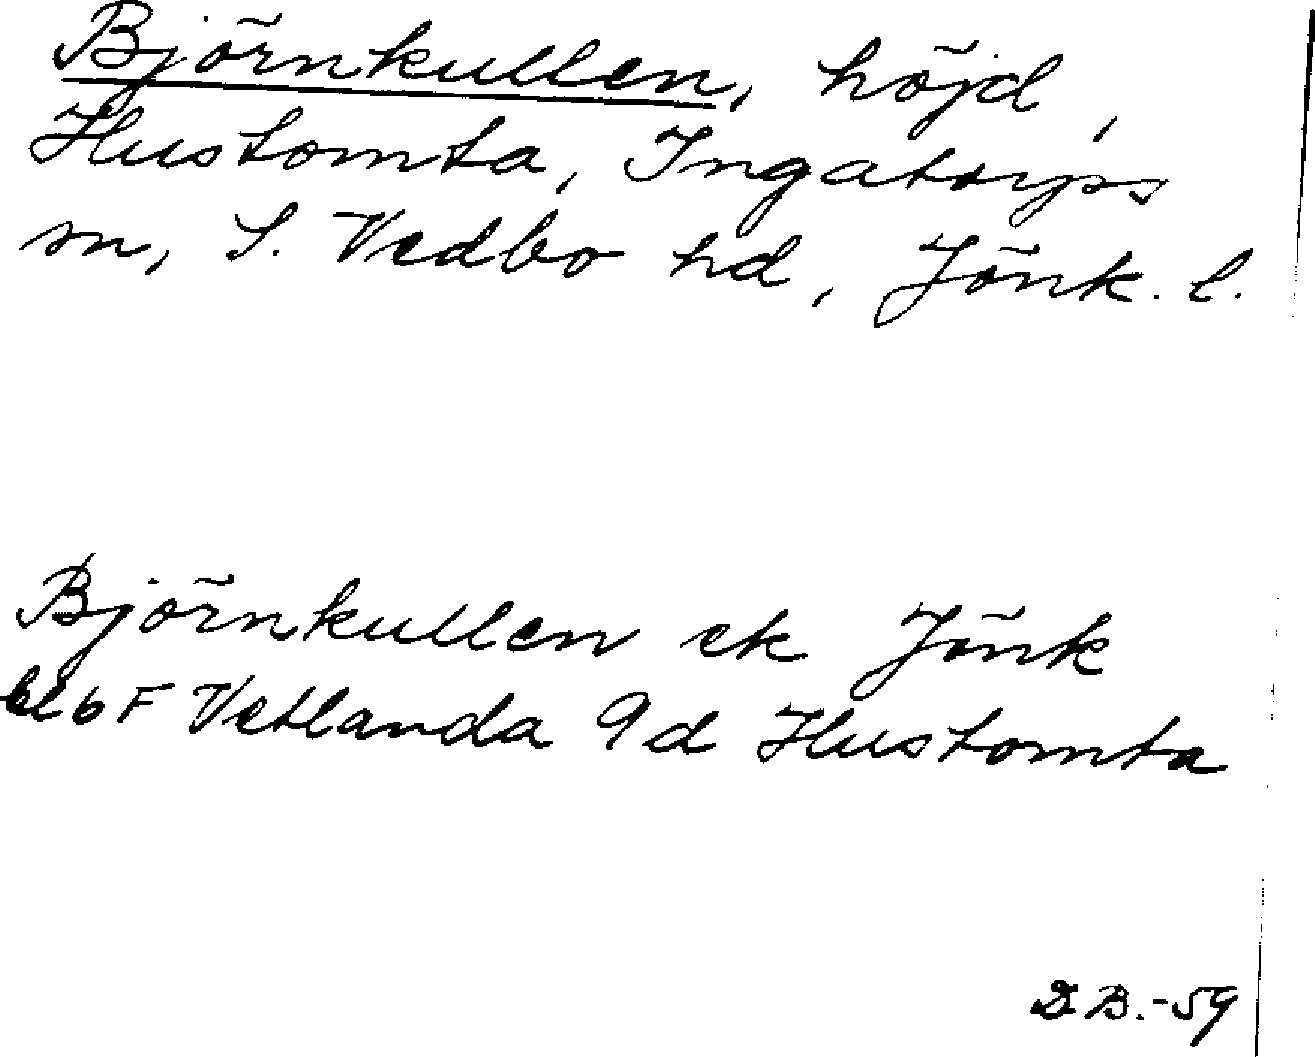 Björnkullen, höjd,
Hustomta, Ingatorps
sn, S. Vedbo hd, Jönk. l.
Björnkullen ek Jönk
bl 6 F Vetlanda 9d Hustomta
D.B.-59